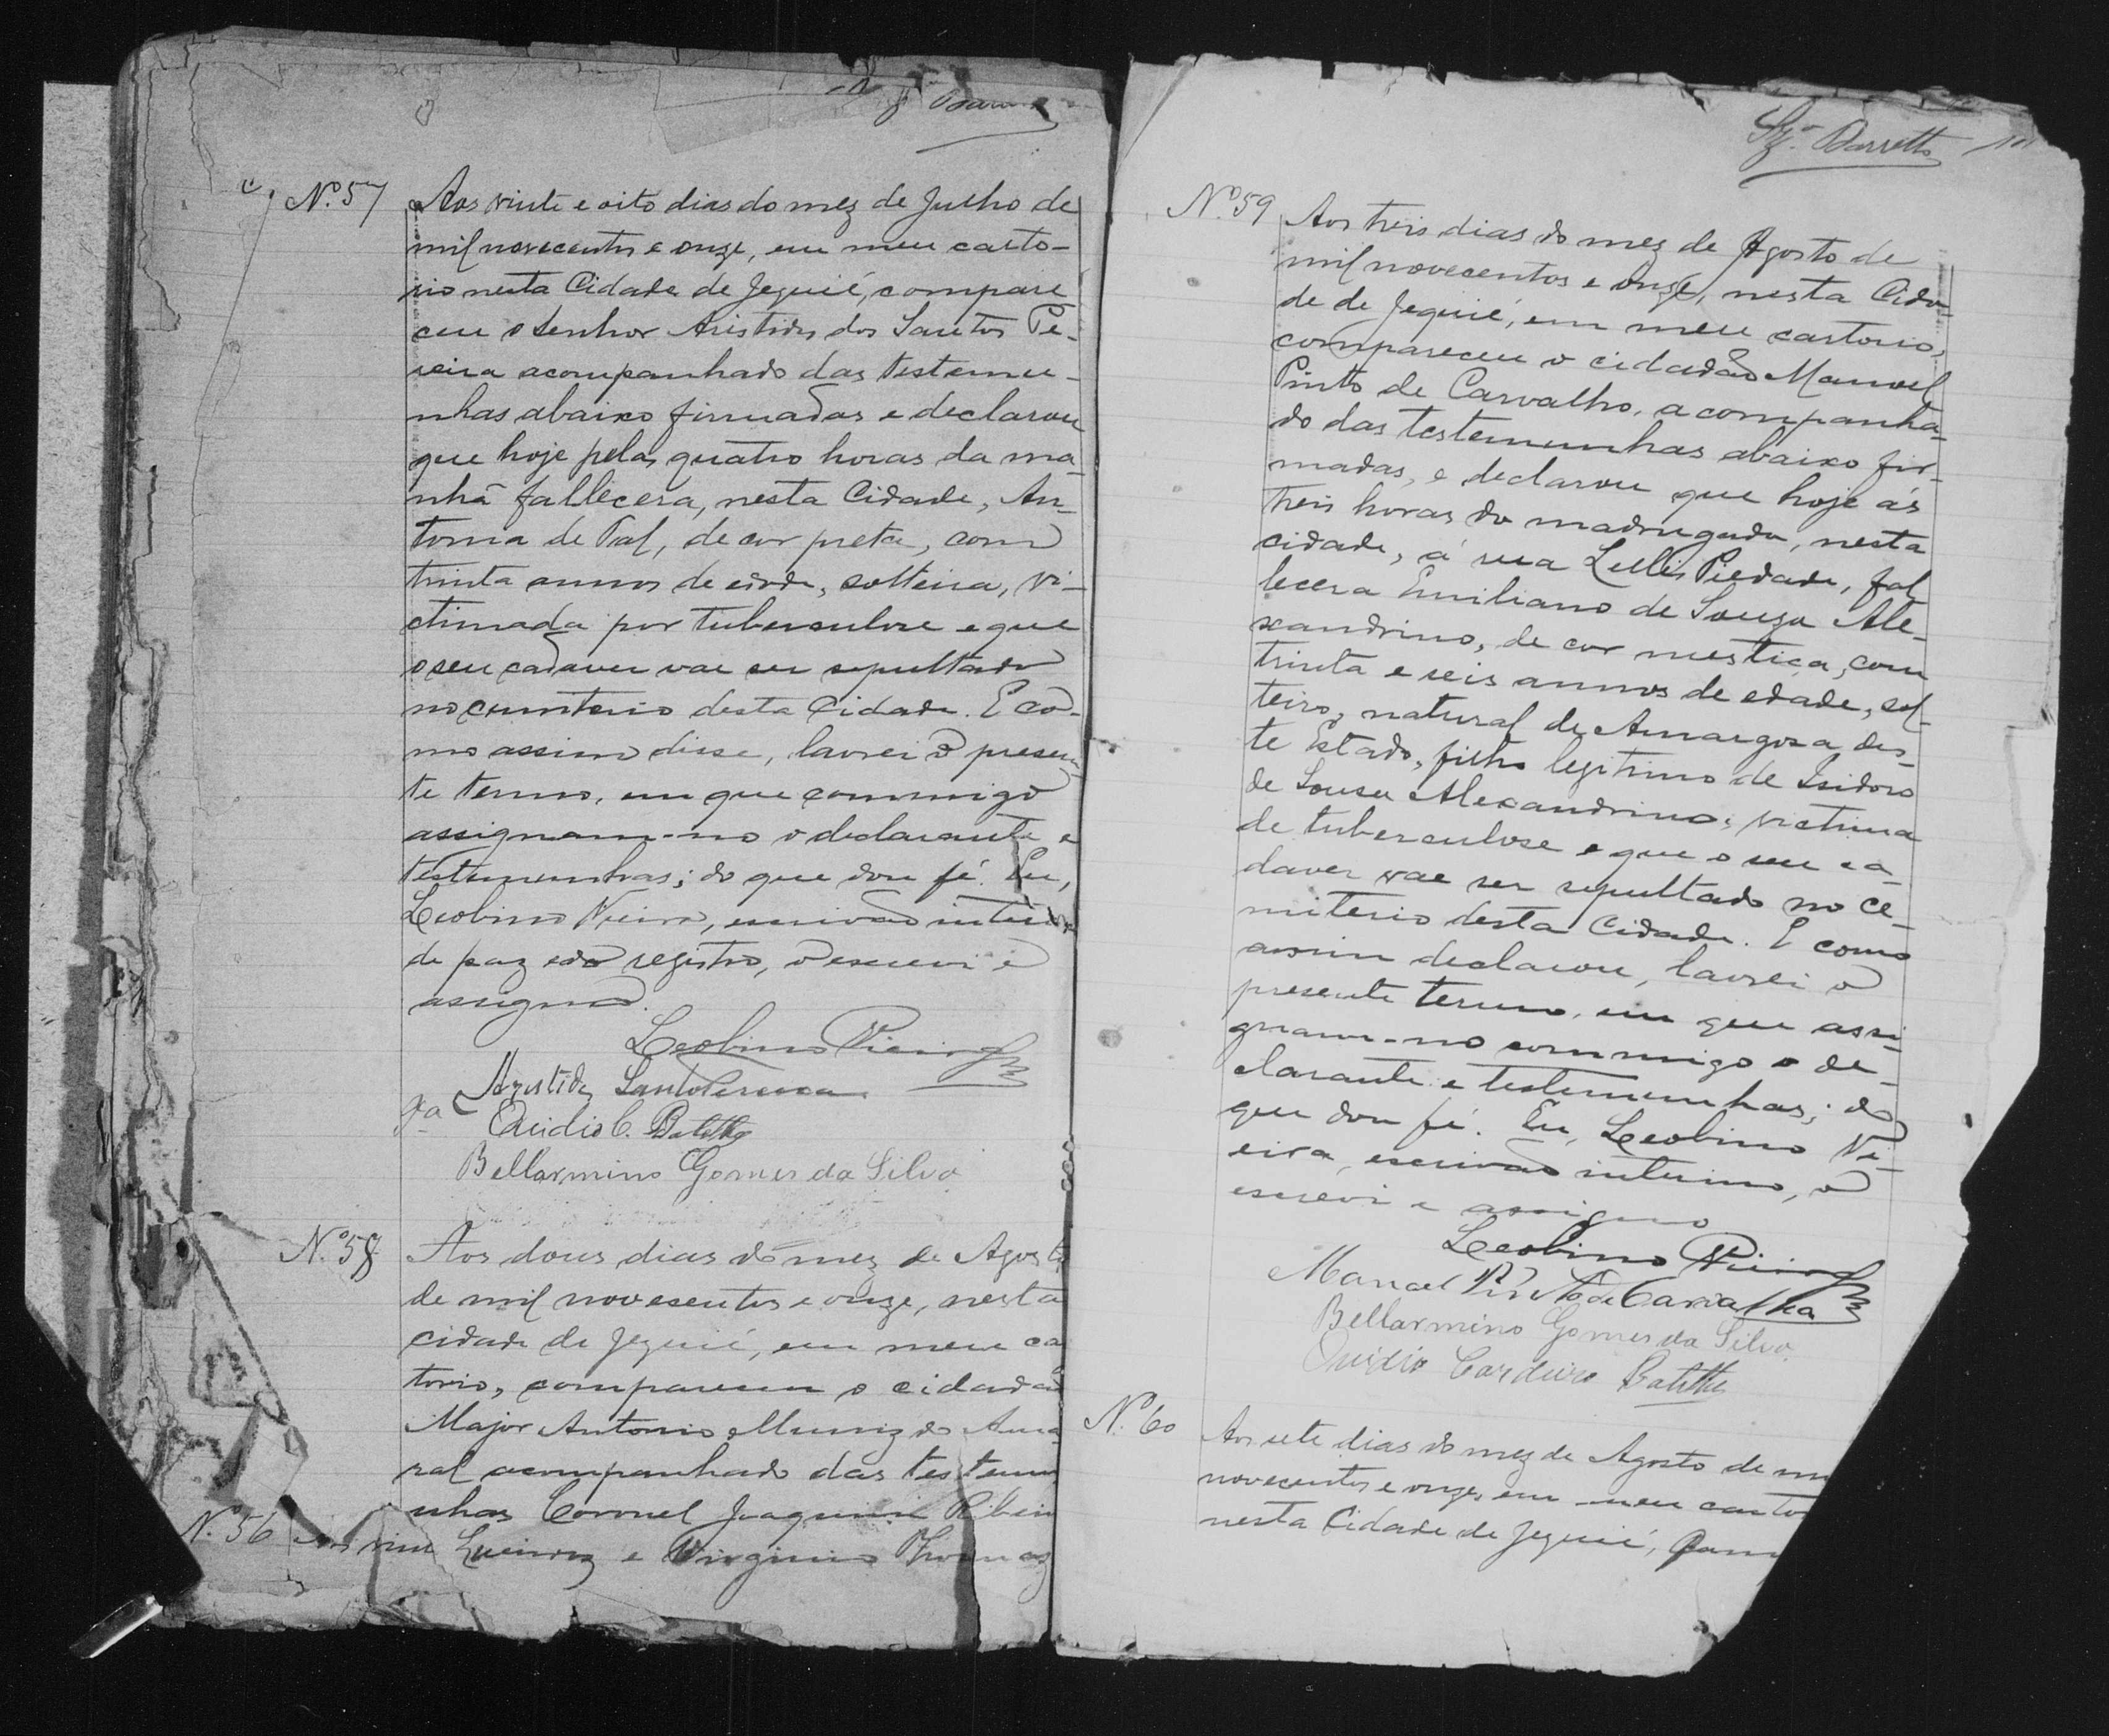 Nº 57
Aos vinte e oito dias do mez de Julho de
mil novecentos e onze, em meu carto-
rio nesta Cidade de Jequié, compare
ceu o senhor Aristides dos Santos Pe-
reira acompanhado das testemu-
nhas abaixo firmadas e declarou
que hoje pelas quatro horas da ma-
nhã fallecera, nesta Cidade, An-
tonia de Tal, de cor preta, com
trinta annos de edade, solteira, vi-
ctimada por tuberculose e que
o seu cadaver vae ser sepultado
no cemiterio desta Cidade. E co-
mo assim disse, lavrei o presen-
te termo, em que commigo
assignam-no o declarante e
testemunhas; do que dou fé. Eu,
Leobino Vieira, escrivão interino
de paz e do registro, o escrevi e
assigno.
Leobino Vieira
Aristides Santos Pereira
Ouidio C. Batitta
Bellarmino Gomes da Silva
Nº 58
Aos dous dias do mez de Agosto
de mil novesentos e onze, nesta
cidade de Jequié, em meu ca
torio, compareceu o cidadão
Major Antonio Muniz do Ama
ral acompanhado das testemu
nhas Coronel Joaquim Ribeiro
Nº 56
Queiroz e Virginio Thomaz
Barretto
Nº 59
Aos treis dias do mez de Agosto de
mil novecentos e onze, nesta Cida-
de de Jequié, em meu cartorio,
compareceu o cidadão Manoel
Pinto de Carvalho, acompanha-
do das testemunhas abaixo fir-
madas, e declarou que hoje ás
treis horas da madrugada, nesta
cidade, á rua Lellis Piedade, fal
lecera Emiliano de Souza Ale-
xandrino, de cor mestiça, com
trinta e seis annos de edade, sol-
teiro, natural de Amargosa des-
te Estado, filho legitimo de Isidoro
de Sousa Alexandrino, victima
de tuberculose e que o seu ca-
daver vae ser sepultado no ce-
miterio desta Cidade. E como
assim declarou, lavrei o
presente termo, em que assi-
gnam-no commigo o de-
clarante e testemunhas; do
que dou fé. Eu, Leobino Vi-
eira, escrivão interino, o
escrevi e assigno
Leobino Vieira
Manoel Pinto de Carvalho
Bellarmino Gomes da Silva
Ouidio Cordeiro Batitta
Nº 60
Aos sete dias do mez de Agosto de
novecentos e onze, em meu carto
nesta Cidade de Jequié,